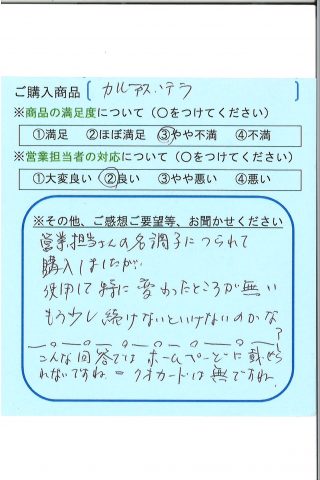 ご購入商品 〔 カルアスハテラ
※商品の満足度について（○をつけてください）
①満足 ②ほぼ満足 ③やや不満 ④不満
※営業担当者の対応について（○をつけてください）
①大変良い ②良い ③やや悪い ④悪い
※その他、ご感想ご要望等、お聞かせください
営業担当さんの名調子につられて
購入しましたが、
使用して特に変わったところが無い
もう少し続けないといけないのかな?
こんな回答ではホームページに載せら
れないですね。=クオカードは無ですね。